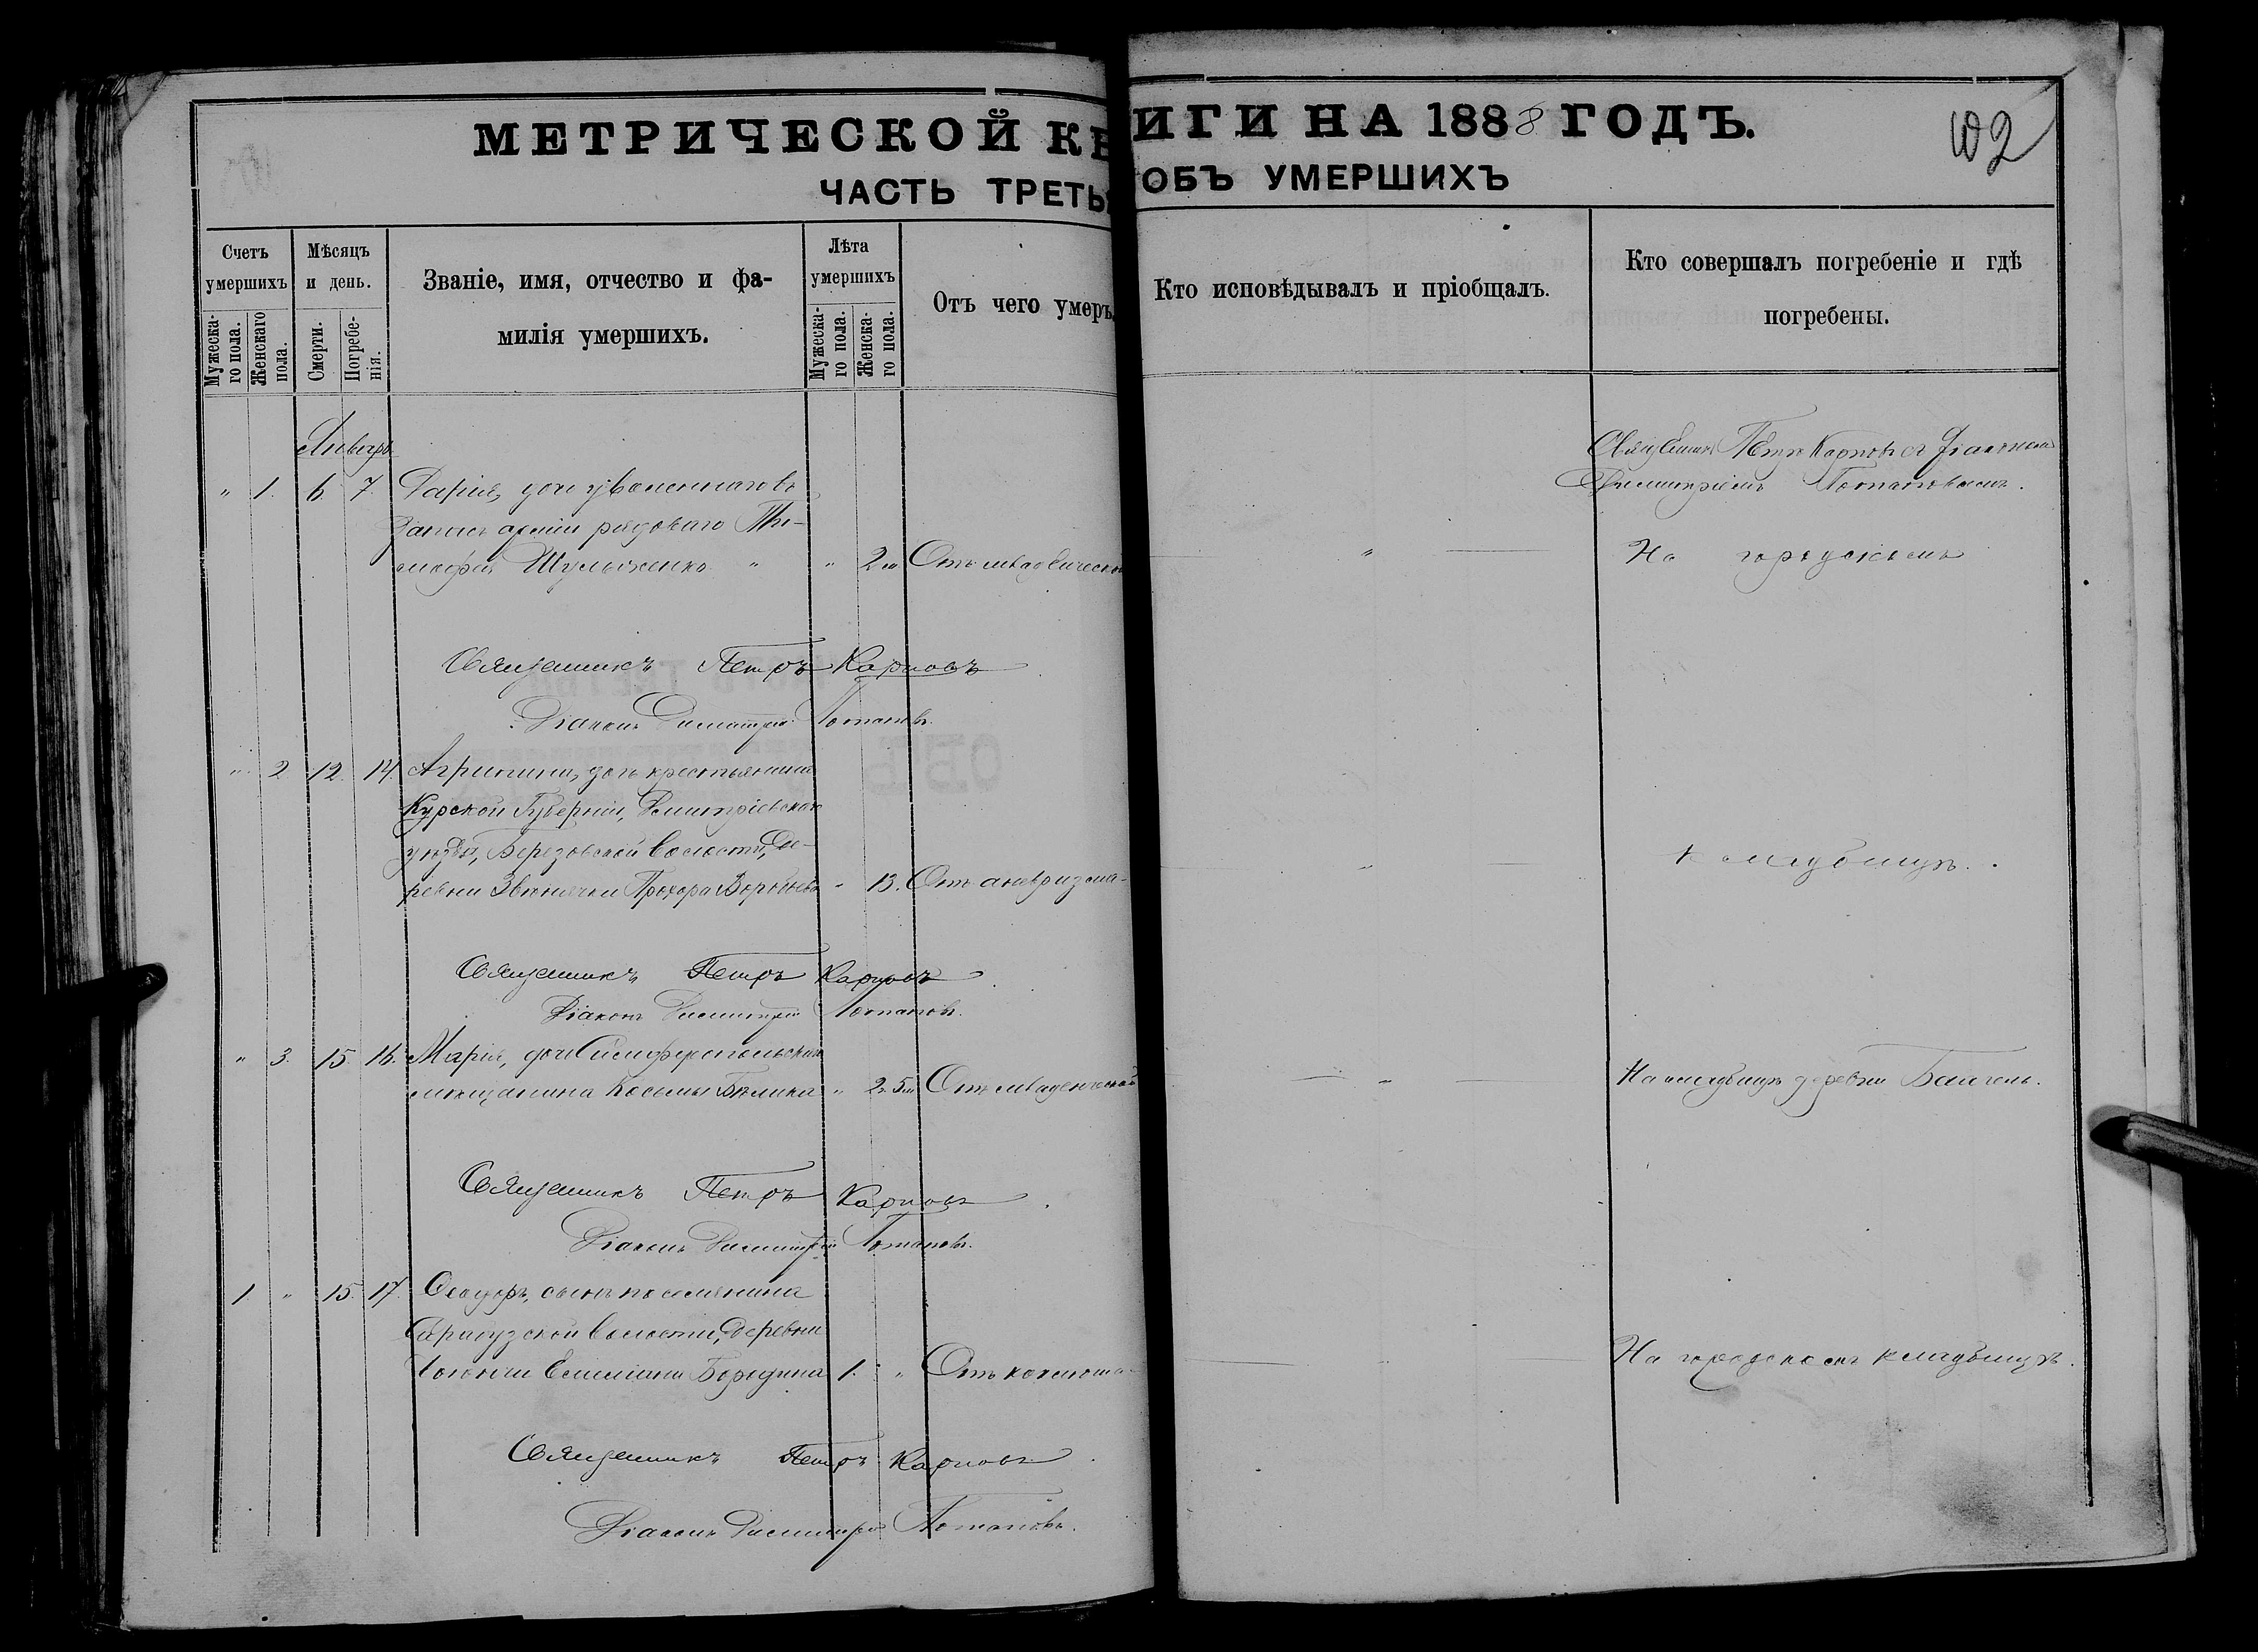 МЕТРИЧЕСКОЙ КН
ИГИ НА 1888 ГОДЪ.
102
ЧАСТЬ ТРЕТЬ
ОБЪ УМЕРШИХЪ
Счетъ умершихъ
Мужеска-го пола.
Женскаго пола.
Мѣсяцъ и день.
Смерти.
Погребе-нія.
Званіе, имя, отчество и фа-
милія умершихъ.
Лѣта умершихъ
Мужеска-го пола.
Женска-го пола.
Отъ чего умеръ.
Кто исповѣдывалъ и пріобщалъ.
Кто совершалъ погребеніе и гдѣ
погребены.
Январь
" 1. 6 7. Дарія, дочь уволеннаго въ
запасъ арміи рядоваго Ти-
мофея Шулыженко " " 2 м Отъ младенческой
Священникъ Петръ Карповъ съ діакономъ
Димитріемъ Потаповымъ.
" На городскомъ
Священникъ Петръ Карповъ
Діаконъ Димитрій Потаповъ.
" 2 12. 14. Агрипина, дочь крестьянина
Курской Губерніи, Димитріевскаго
уѣзда, Березовской волости, Де-
ревни Званнячки Прохора Воробьева " 13. Отъ аневризма
кладбищѣ.
Священникъ Петръ Карповъ
Діаконъ Димитрій Потаповъ.
" 3. 15 16. Марія, дочь Симферопольскаго
мѣщанина Косьмы Бѣлика " 2г. 5м Отъ младенческой
" На кладбищѣ деревни
Священникъ Петръ Карповъ.
Діаконъ Димитрій Потаповъ.
1. " 15. 17. Ѳеодоръ, сынъ поселянина
Сарабузской волости, Деревни
Емиліана Бородина 1. " Отъ коклюша
На городскомъ кладбищѣ.
Священникъ Петръ Карповъ.
Діаконъ Димитрій Потаповъ.